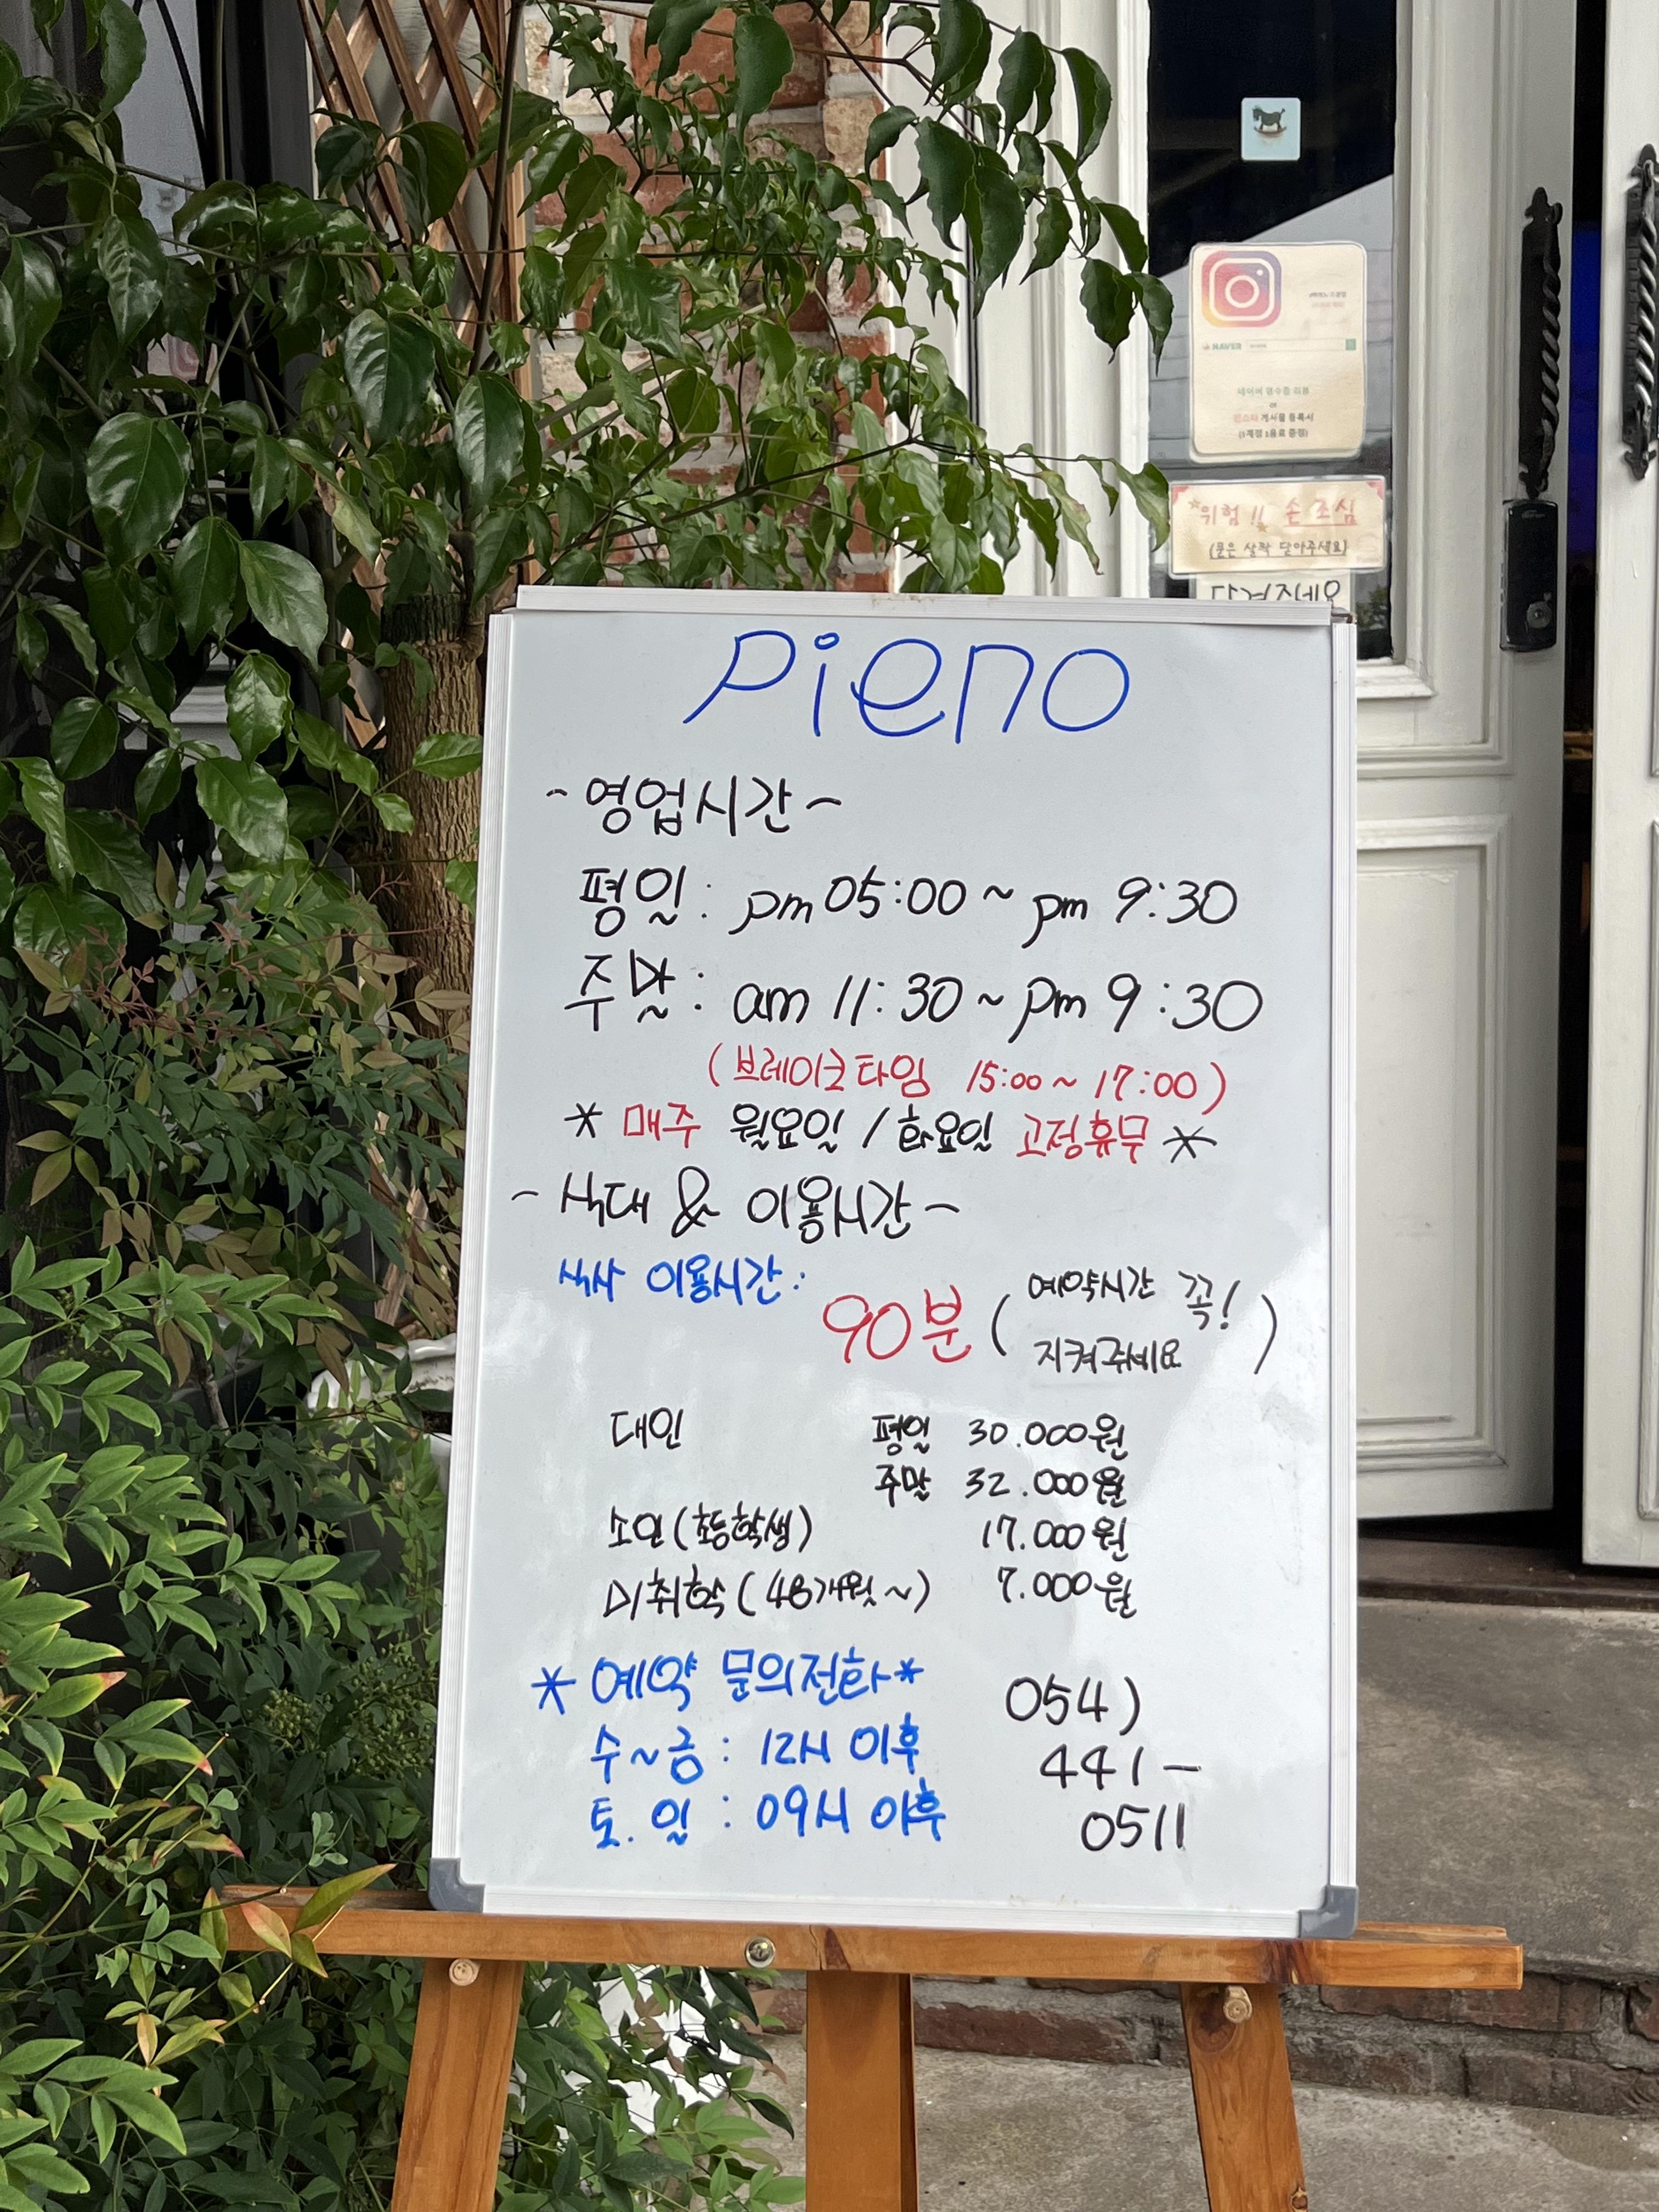 Pieno
~영업시간~
평일: pm 05:00 ~ pm 9:30
주말: am 11:30 ~ pm 9:30
(브레이크타임 15:00 ~ 17:00)
* 매주 월요일 / 화요일 고정휴무 *
~식대 & 이용시간~
식사 이용시간:
90분 (예약시간 꼭!
지켜주세요)
대인 평일 30.000원
주말 32.000원
소인(초등학생) 17.000원
미취학(48개월~) 7.000원
*예약 문의전화*
수~금 : 12시 이후
토.일 : 09시 이후
054)
441-
0511
NAVER
네이버 영수증 리뷰
or
게시물 등록시
(1계정 1음료 증정)
위험!! 손조심
(문은 살짝 닫아주세요)